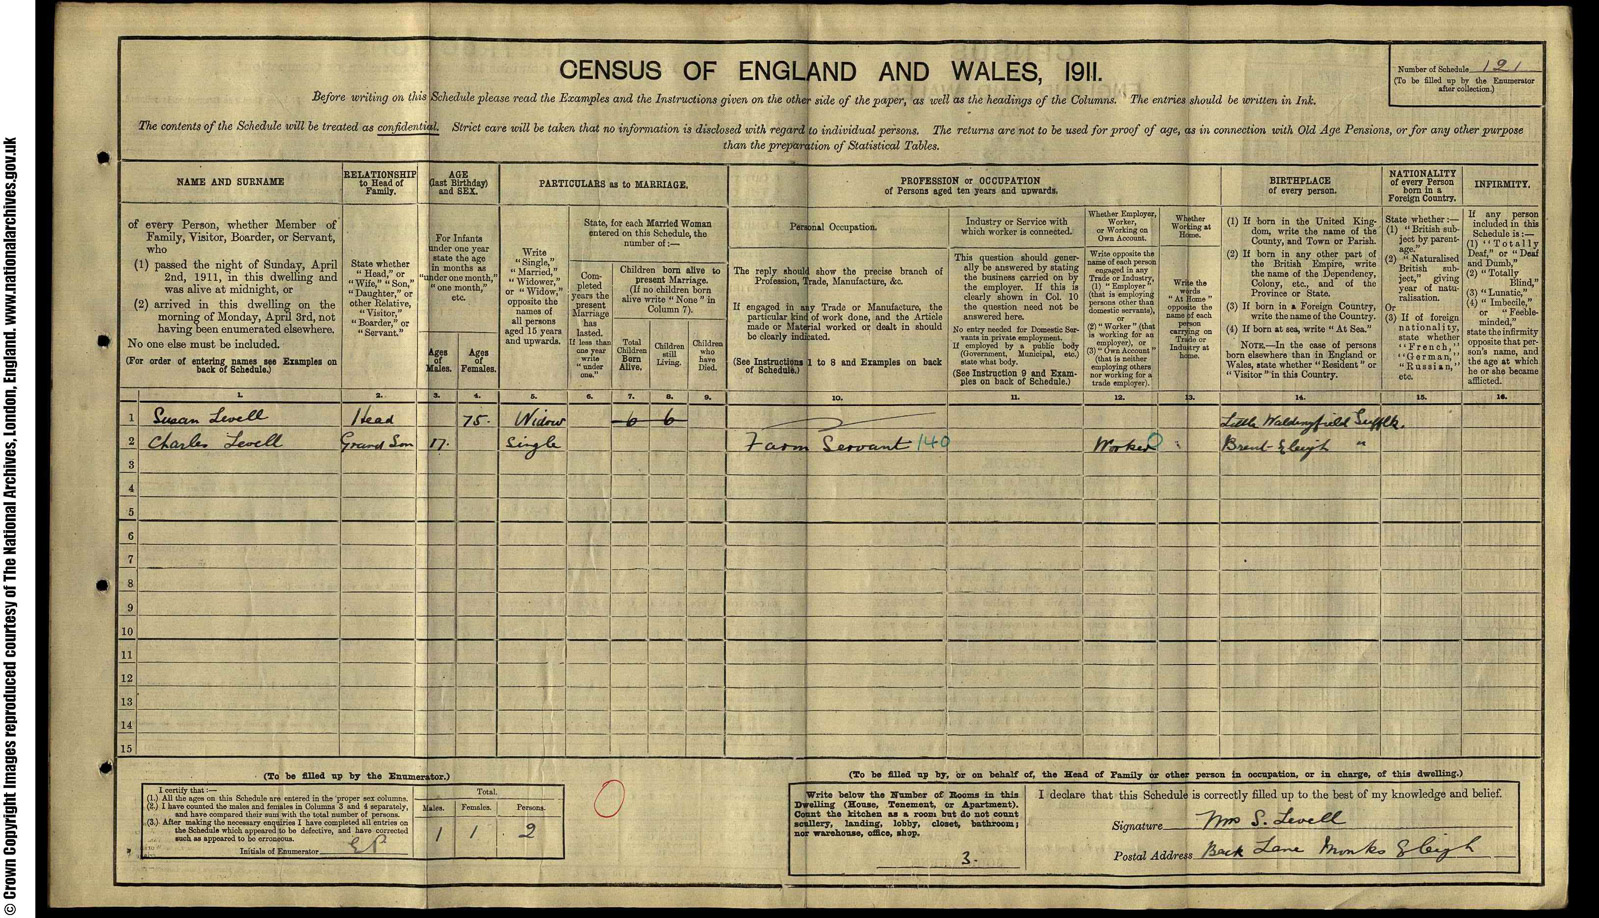 CENSUS OF ENGLAND AND WALES, 1911.
Number of Schedule 121
(To be filled up by the Enumerator
after collection.)
Before writing on this Schedule please read the Examples and the Instructions given on the other side of the paper, as well as the headings of the Columns. The entries should be written in Ink.
The contents of the Schedule will be treated as confidential. Strict care will be taken that no information is disclosed with regard to individual persons. The returns are not to be used for proof of age, as in connection with Old Age Pensions, or for any other purpose
than the preparation of Statistical Tables.
NAME AND SURNAME
of every Person, whether Member of
Family, Visitor, Boarder, or Servant,
who
(1) passed the night of Sunday, April
2nd, 1911, in this dwelling and
was alive at midnight, or
(2) arrived in this dwelling on the
morning of Monday, April 3rd, not
having been enumerated elsewhere.
No one else must be included.
(For order of entering names see Examples on
back of Schedule.)
RELATIONSHIP
to Head of
Family.
State whether
"Head," or
"Wife," "Son,"
"Daughter," or
other Relative,
"Visitor,"
"Boarder," or
"Servant."
AGE
(last Birthday)
and SEX.
For Infants
under one year
state the age
in months as
"under one month,"
"one month,"
etc.
Ages
of
Males.
Ages
of
Females.
PARTICULARS as to MARRIAGE.
Write
"Single,"
"Married,"
"Widower,"
or "Widow,"
opposite the
names of
all persons
aged 15 years
and upwards.
State, for each Married Woman
entered on this Schedule, the
number of :—
Com-
pleted
years the
present
Marriage
has
lasted.
If less than
one year
write
"under
one."
Children born alive to
present Marriage.
(If no children born
alive write "None" in
Column 7).
Total
Children
Born
Alive.
Children
still
Living.
Children
who
have
Died.
PROFESSION or OCCUPATION
of Persons aged ten years and upwards.
Personal Occupation.
The reply should show the precise branch of
Profession, Trade, Manufacture, &c.
If engaged in any Trade or Manufacture, the
particular kind of work done, and the Article
made or Material worked or dealt in should
be clearly indicated.
(See Instructions 1 to 8 and Examples on back
of Schedule.)
Industry or Service with
which worker is connected.
This question should gener-
ally be answered by stating
the business carried on by
the employer. If this is
clearly shown in Col. 10
the question need not be
answered here.
No entry needed for Domestic Ser-
vants in private employment.
If employed by a public body
(Government, Municipal, etc.)
state what body.
(See Instruction 9 and Exam-
ples on back of Schedule.)
Whether Employer,
Worker,
or Working on
Own Account.
Write opposite the
name of each person
engaged in any
Trade or Industry,
(1) "Employer"
(that is employing
persons other than
domestic servants),
or
(2) "Worker" (that
is working for an
employer), or
(3) "Own Account"
(that is neither
employing others
nor working for a
trade employer).
Whether
Working at
Home.
Write the
words
"At Home"
opposite the
name of each
person
carrying on
Trade or
Industry at
home.
BIRTHPLACE
of every person.
(1) If born in the United King-
dom, write the name of the
County, and Town or Parish.
(2) If born in any other part of
the British Empire, write
the name of the Dependency,
Colony, etc., and of the
Province or State.
(3) If born in a Foreign Country,
write the name of the Country.
(4) If born at sea, write "At Sea."
NOTE.—In the case of persons
born elsewhere than in England or
Wales, state whether "Resident" or
"Visitor" in this Country.
NATIONALITY
of every Person
born in a
Foreign Country.
State whether :—
(1) "British sub-
ject by parent-
age."
(2) "Naturalised
British sub-
ject," giving
year of natu-
ralisation.
Or
(3) If of foreign
nationality,
state whether
"French,"
"German,"
"Russian,"
etc.
INFIRMITY.
If any person
included in this
Schedule is :—
(1) "Totally
Deaf," or "Deaf
and Dumb,"
(2) "Totally
Blind,"
(3) "Lunatic,"
(4) "Imbecile,"
or "Feeble-
minded,"
state the infirmity
opposite that per-
son's name, and
the age at which
he or she became
afflicted.
1. 2. 3. 4. 5. 6. 7. 8. 9. 10. 11. 12. 13. 14. 15. 16.
1 Susan Levell Head 75. Widow 6 6 Little Waldingfield Suffolk.
2 Charles Levell Grand Son 17. Single Farm Servant 140 Worker Brent Eleigh "
3
4
5
6
7
8
9
10
11
12
13
14
15
(To be filled up by the Enumerator.)
I certify that :—
(1.) All the ages on this Schedule are entered in the proper sex columns.
(2.) I have counted the males and females in Columns 3 and 4 separately,
and have compared their sum with the total number of persons.
(3.) After making the necessary enquiries I have completed all entries on
the Schedule which appeared to be defective, and have corrected
such as appeared to be erroneous.
Initials of Enumerator
Total.
Males. Females. Persons.
1 1 2
(To be filled up by, or on behalf of, the Head of Family or other person in occupation, or in charge, of this dwelling.)
Write below the Number of Rooms in this
Dwelling (House, Tenement, or Apartment).
Count the kitchen as a room but do not count
scullery, landing, lobby, closet, bathroom;
nor warehouse, office, shop.
3.
I declare that this Schedule is correctly filled up to the best of my knowledge and belief.
Signature Mrs S. Levell
Postal Address Back Lane Monks Eleigh
© Crown Copyright Images reproduced courtesy of The National Archives, London, England. www.nationalarchives.gov.uk